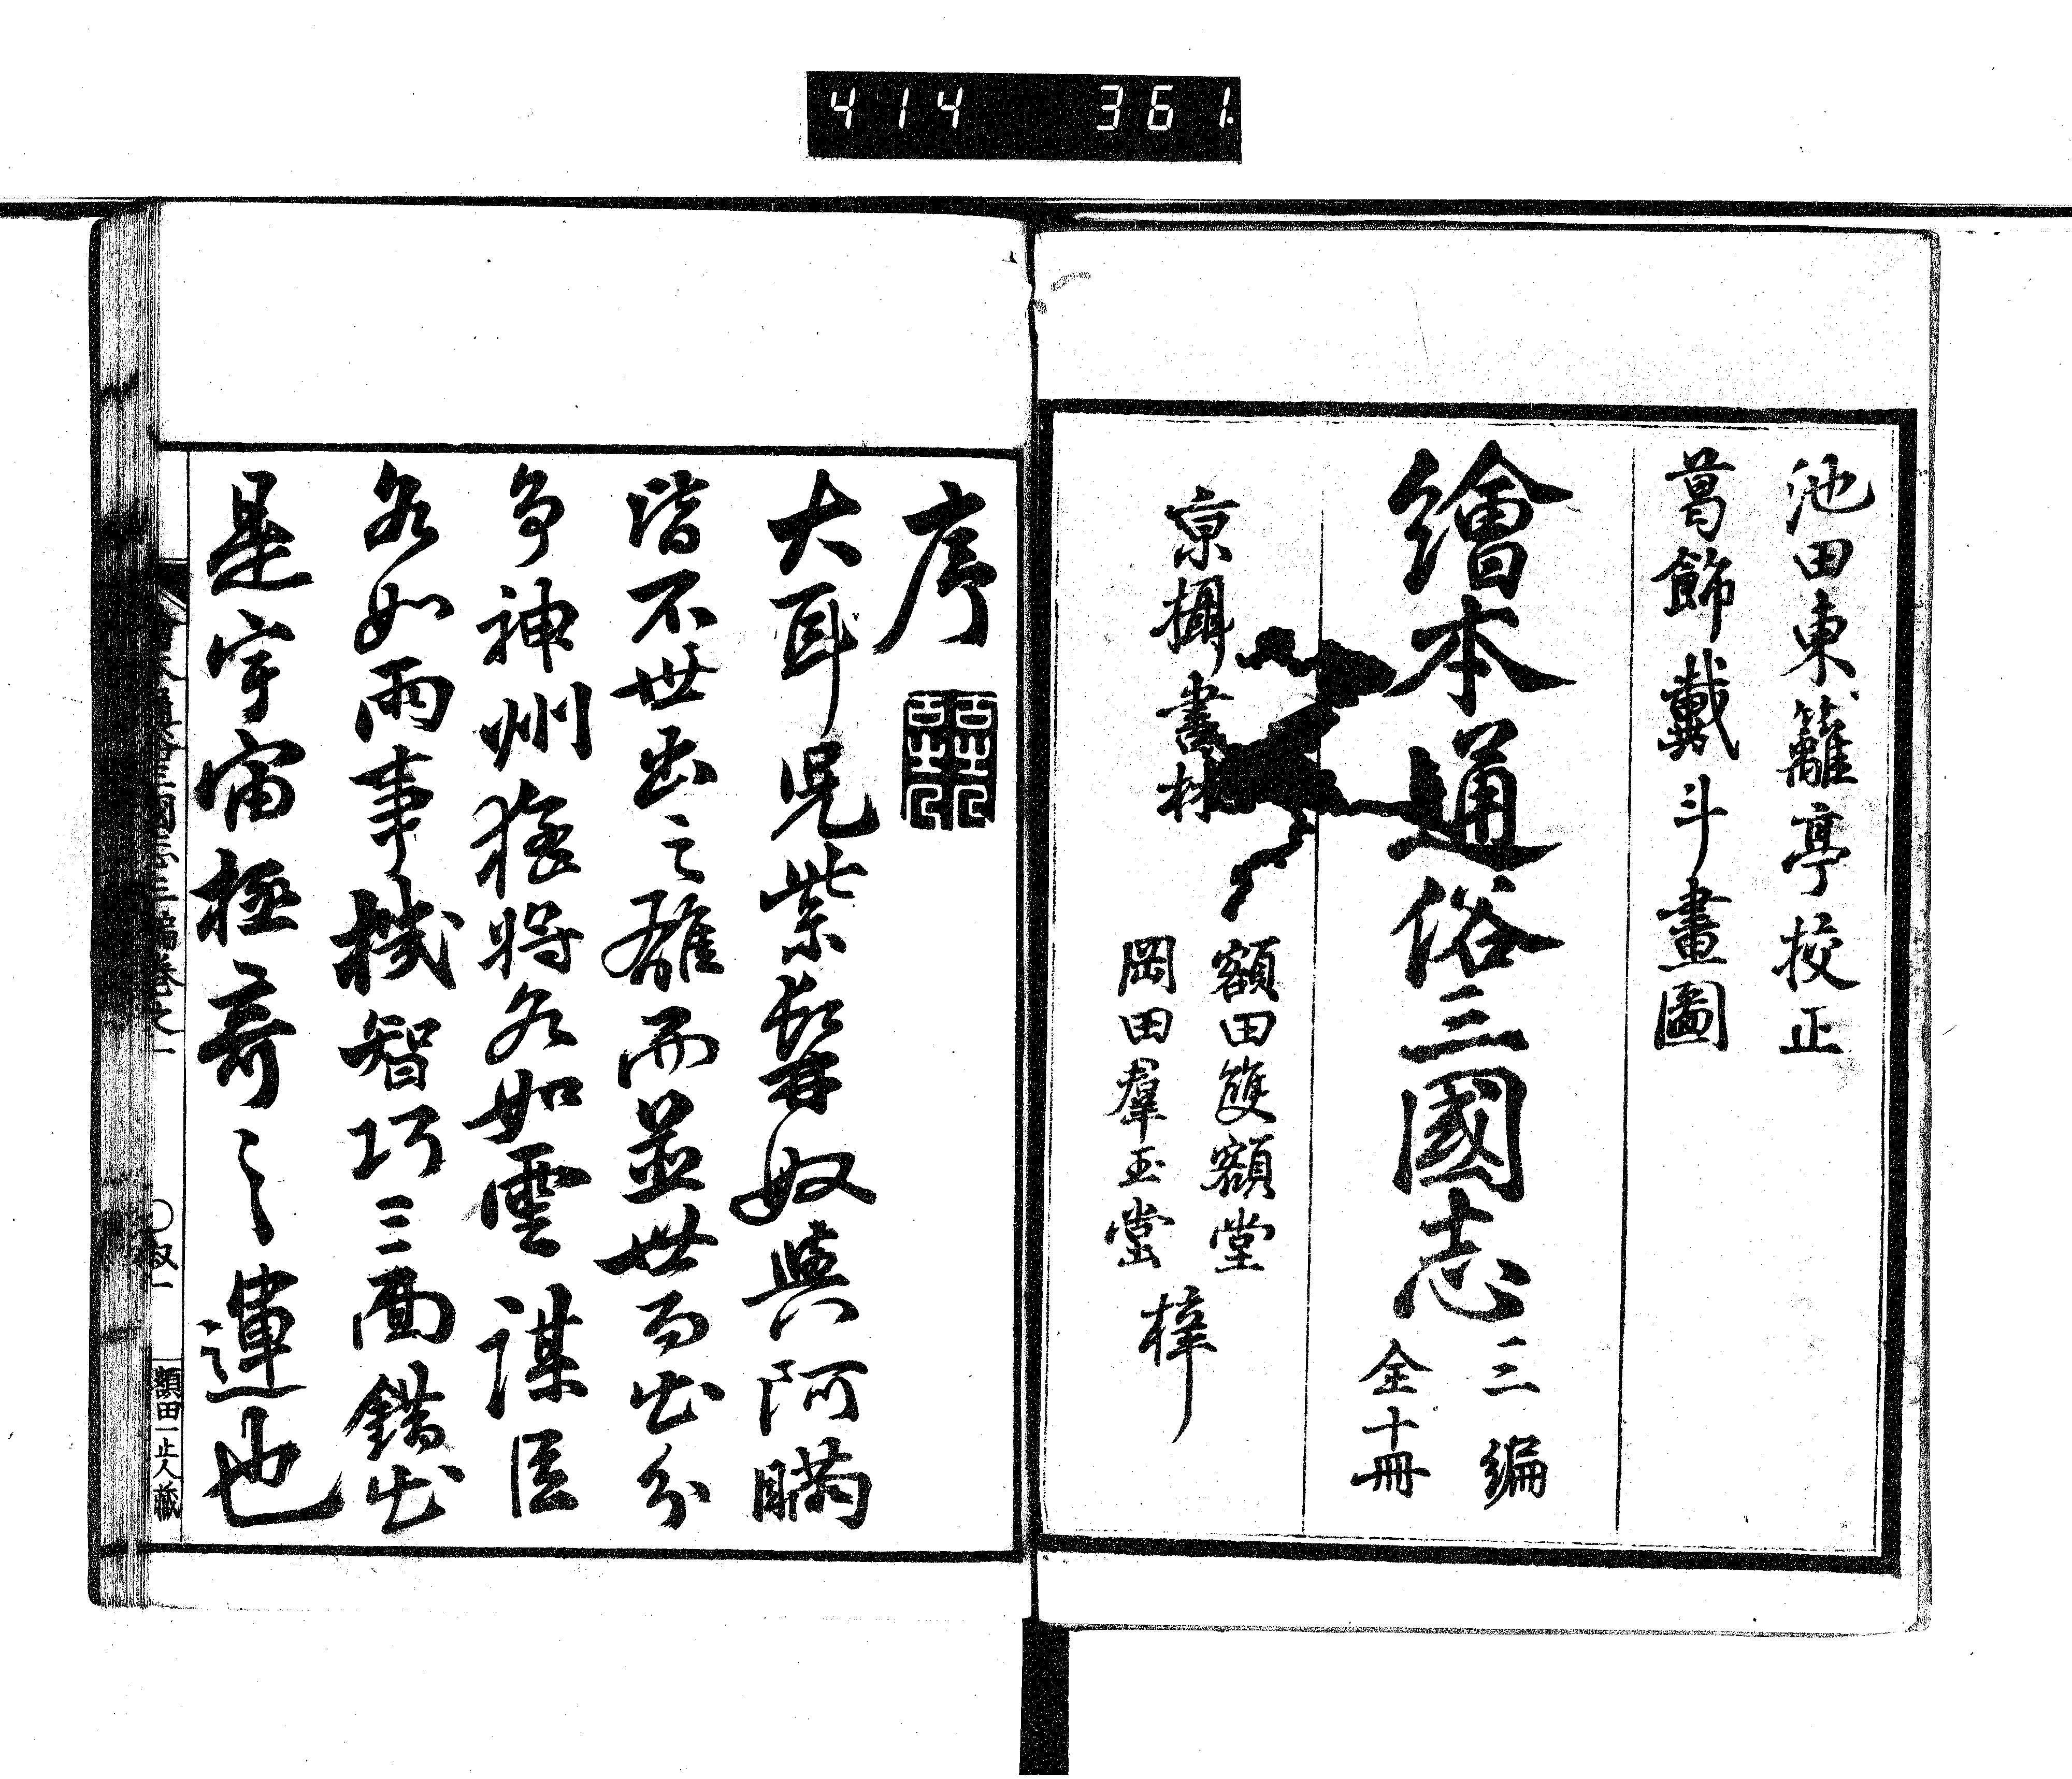 414 361
池田東籬亭挍正
葛飾戴斗畫圖
繪本通俗三國志
三編
全十冊
京攝書林
額田雙額堂
岡田羣玉堂
梓
序
大耳児紫髯奴與阿瞞
皆不世出之雄而並世而出分
争神州猛将各如雲謀臣
各如雨事機智巧三面錯出
是宇宙極奇之運也
三國志三編卷之一
〇叙一
額田一止人藏